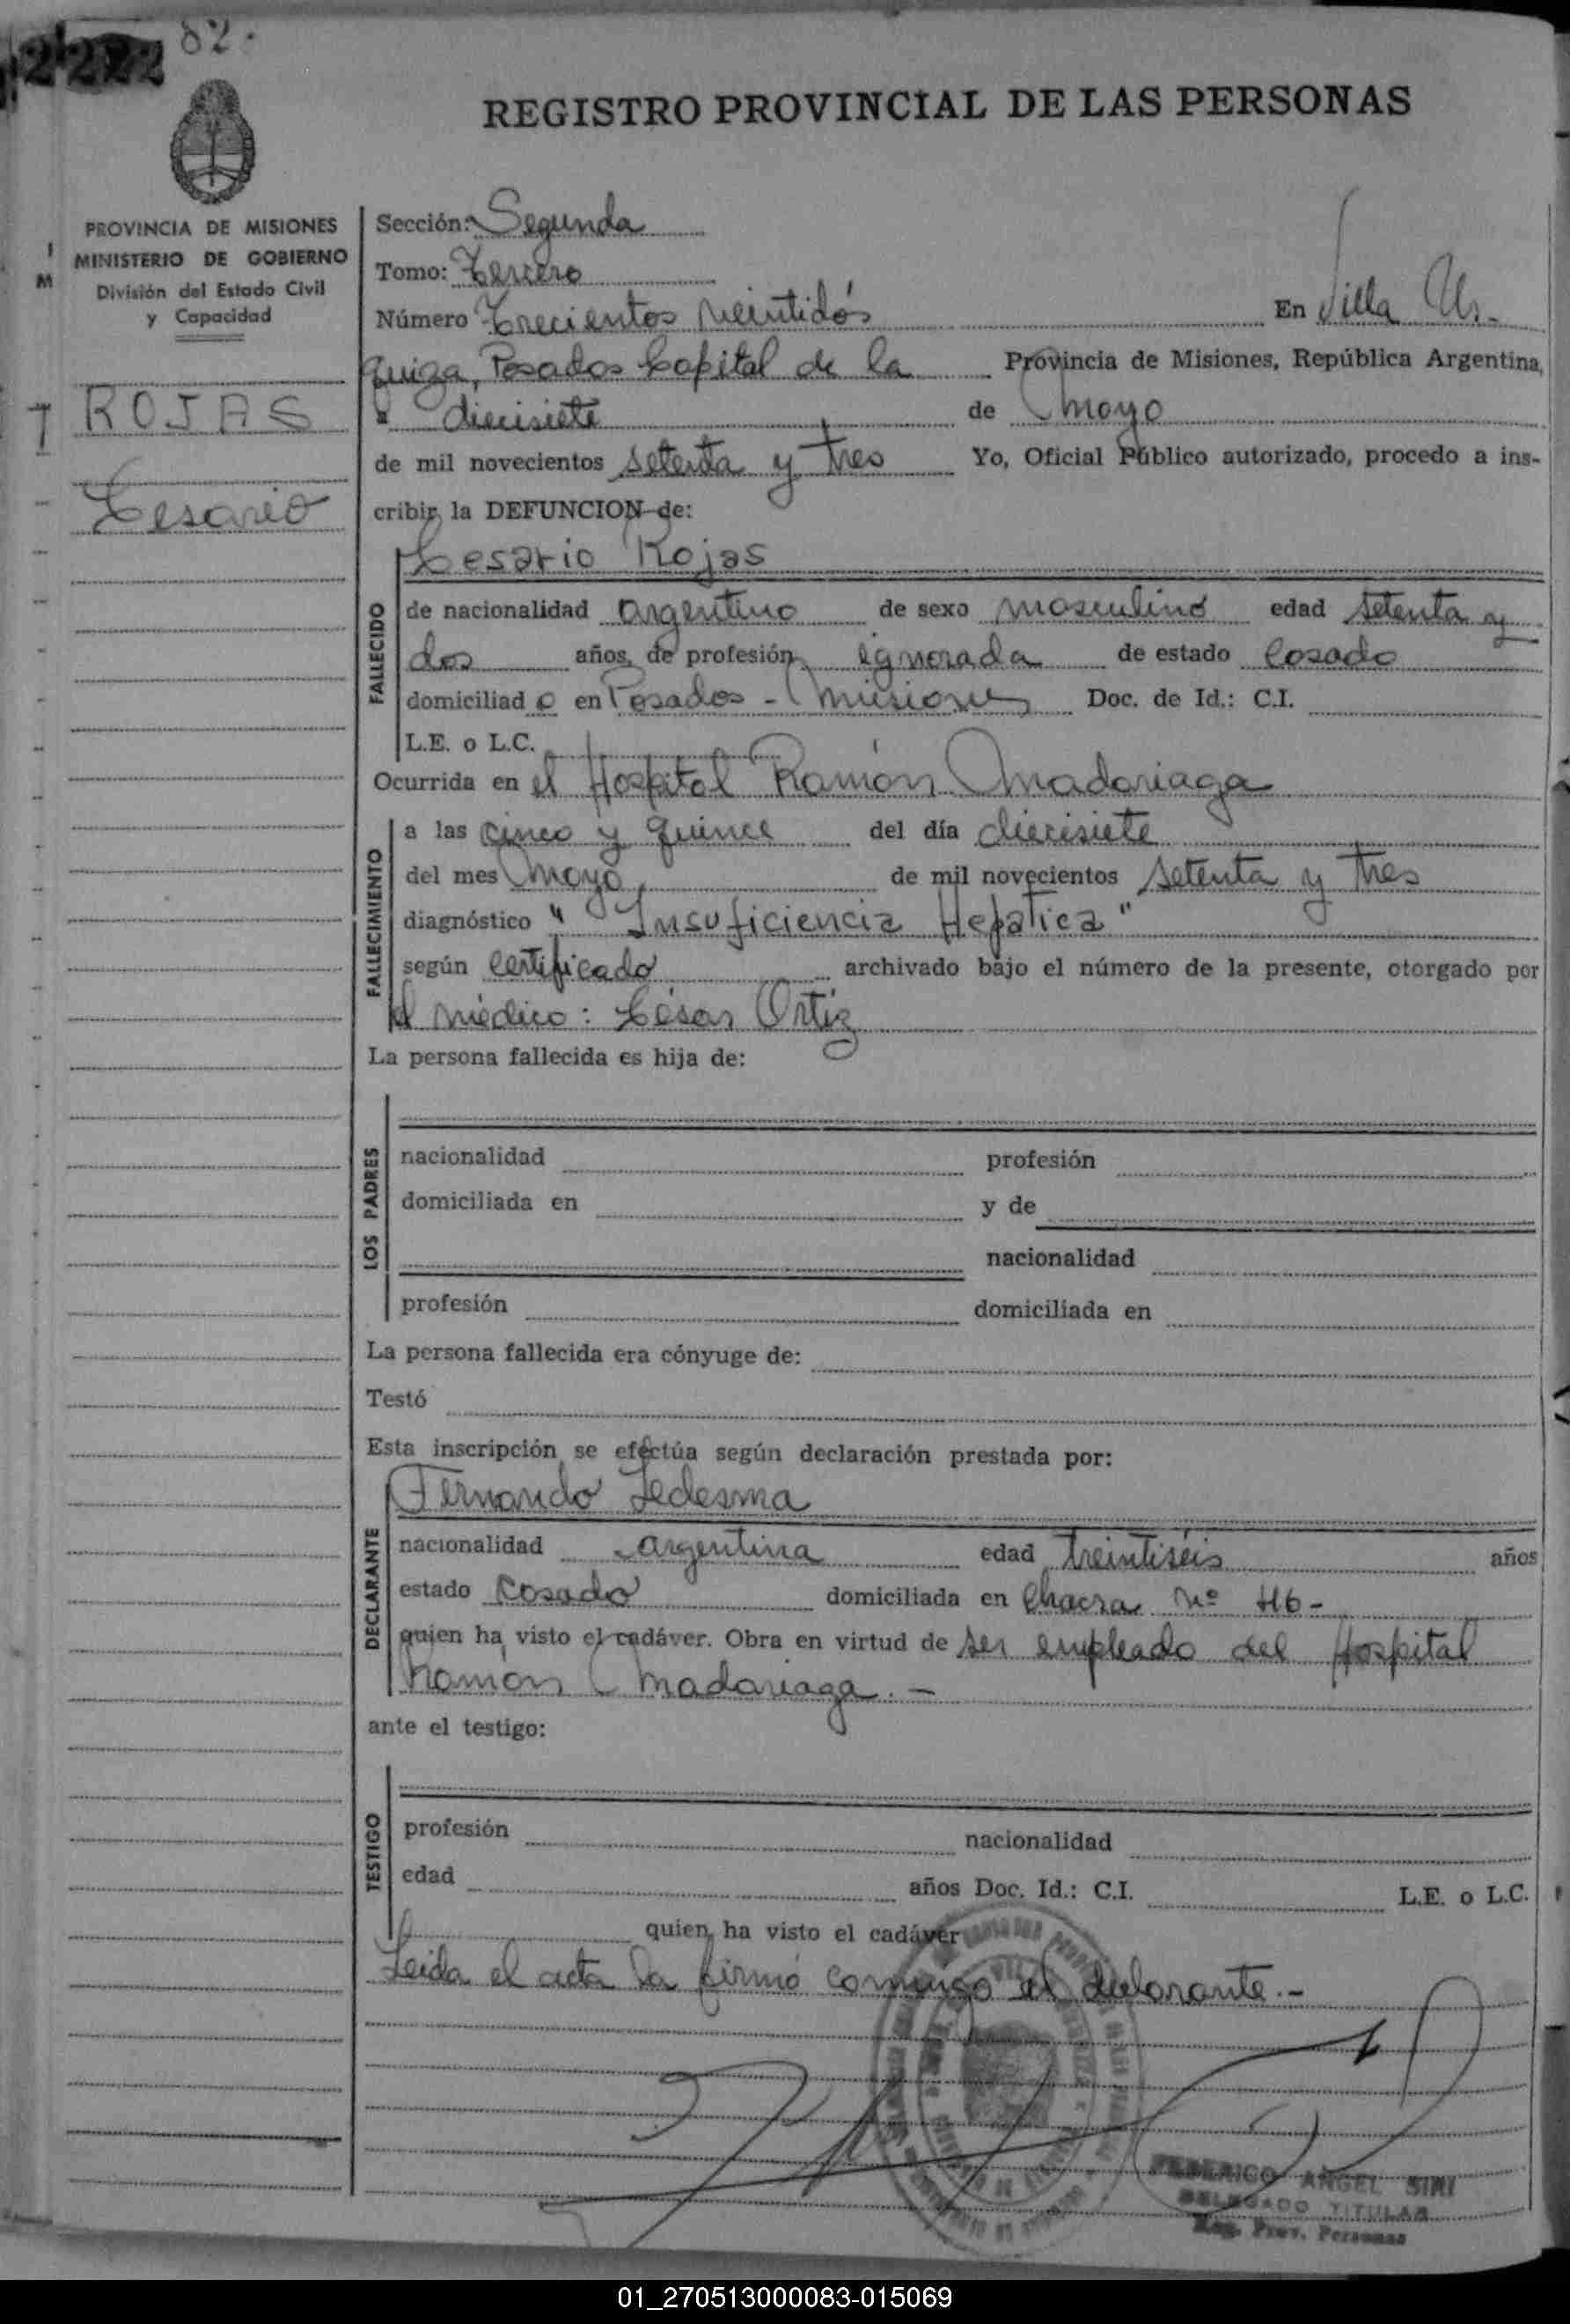 82.
REGISTRO PROVINCIAL DE LAS PERSONAS
PROVINCIA DE MISIONES
MINISTERIO DE GOBIERNO
División del Estado Civil
y Capacidad
ROJAS
Cesario
Sección: Segunda
Tomo: Tercero
Número Trecientos veintidós En Villa Ur-
quiza, Posadas Capital de la Provincia de Misiones, República Argentina,
a diecisiete de mayo
de mil novecientos setenta y tres Yo, Oficial Público autorizado, procedo a ins-
cribir la DEFUNCION de:
Cesario Rojas
FALLECIDO
de nacionalidad argentino de sexo masculino edad setenta y
dos años, de profesión ignorada de estado casado
domiciliad o en Posadas - Misiones Doc. de Id.: C.I.
L.E. o L.C.
Ocurrida en el Hospital Ramón Madariaga
FALLECIMIENTO
a las cinco y quince del día diecisiete
del mes Mayo, de mil novecientos setenta y tres
diagnóstico "Insuficiencia Hepatica"
según certificado archivado bajo el número de la presente, otorgado por
el médico: César Ortiz
La persona fallecida es hija de:
LOS PADRES
nacionalidad profesión
domiciliada en y de
nacionalidad
profesión domiciliada en
La persona fallecida era cónyuge de:
Testó
Esta inscripción se efectúa según declaración prestada por:
Fernando Ledesma
DECLARANTE
nacionalidad argentina edad treintiséis años
estado casado domiciliada en Chacra Nº 46-
quien ha visto el cadáver. Obra en virtud de ser empleado del Hospital
Ramón Madariaga. -
ante el testigo:
TESTIGO
profesión nacionalidad
edad años Doc. Id.: C.I. L.E. o L.C.
quien ha visto el cadáver
Leida el acta la firmó conmigo el declarante.-
FEDERICO ANGEL SIRI
DELEGADO TITULAR
Reg. Prov. Personas
01_270513000083-015069